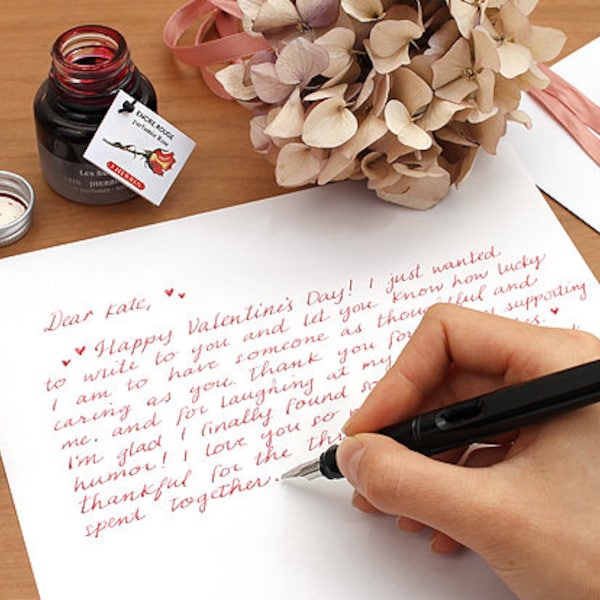 ENCRE ROUGE
parfumée Rose
J.HERBIN
Les Su
JHERBI
Dear Kate,
Happy Valentine's Day! I just wanted
to write to you and let you know how lucky
I am to have someone as thoughtful and
caring as you. Thank you for supporting
me. and for laughing at my
I'm glad I finally found so
humor! I love you so
thankful for the
spent together.